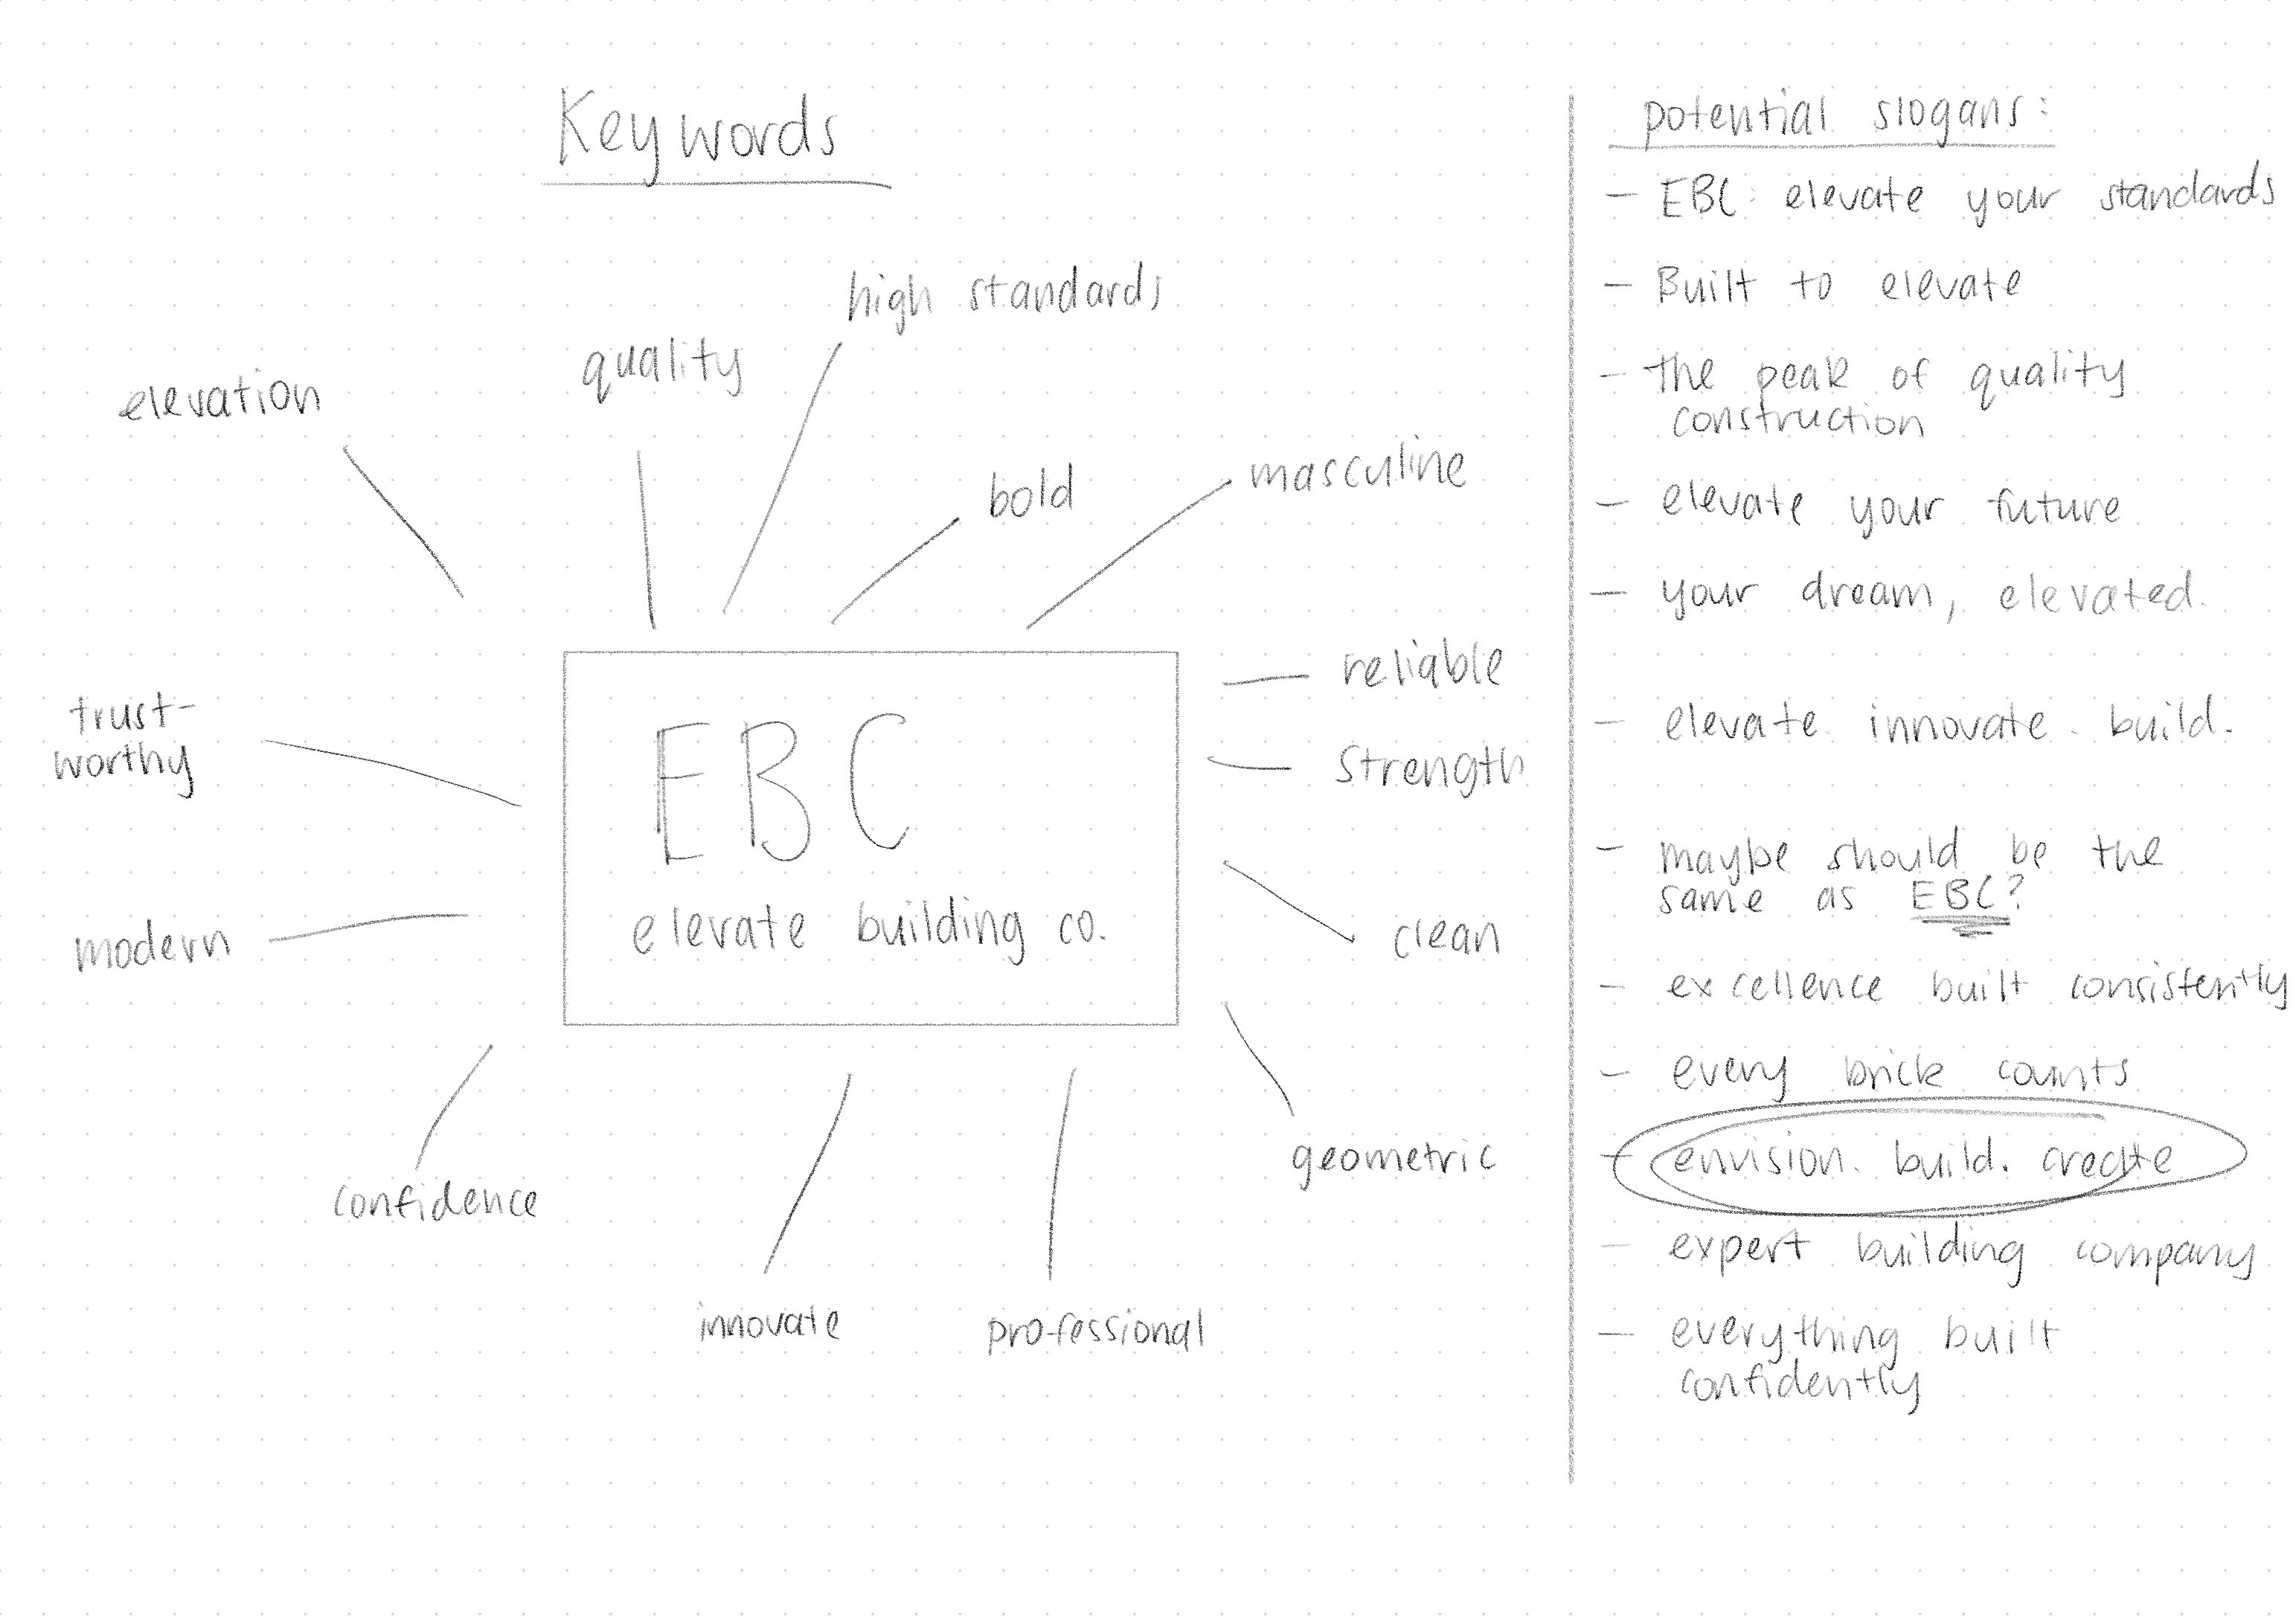 Keywords
high standards
quality
elevation
bold
masculine
reliable
strength
trust-
worthy
EBC
elevate building co.
modern
clean
geometric
confidence
innovate
professional
potential slogans:
- EBC: elevate your standards
- Built to elevate
- the peak of quality
construction
- elevate your future
- your dream, elevated.
- elevate. innovate. build.
- maybe should be the
same as EBC?
- excellence built consistently
- every brick counts
- envision. build. create
- expert building company
- everything built
confidently